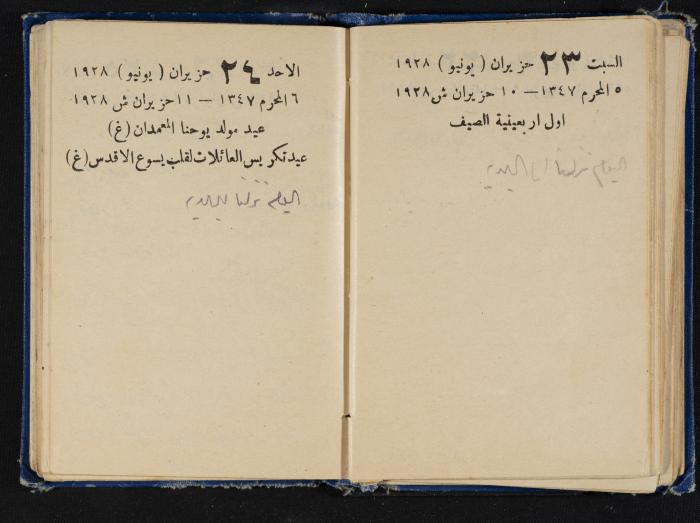 السبت ٢٣ حزيران ( يونيو ) ١٩٢٨
٥ المحرم ١٣٤٧ — ١٠ حزيران ش ١٩٢٨
اول اربعينية الصيف
اليوم نزلنا الى البلدية
الاحد ٢٤ حزيران ( يونيو ) ١٩٢٨
٦ المحرم ١٣٤٧ — ١١ حزيران ش ١٩٢٨
عيد مولد يوحنا المعمدان (غ)
عيد تكريس العائلات لقلب يسوع الاقدس (غ)
اليوم نزلنا للبلدية